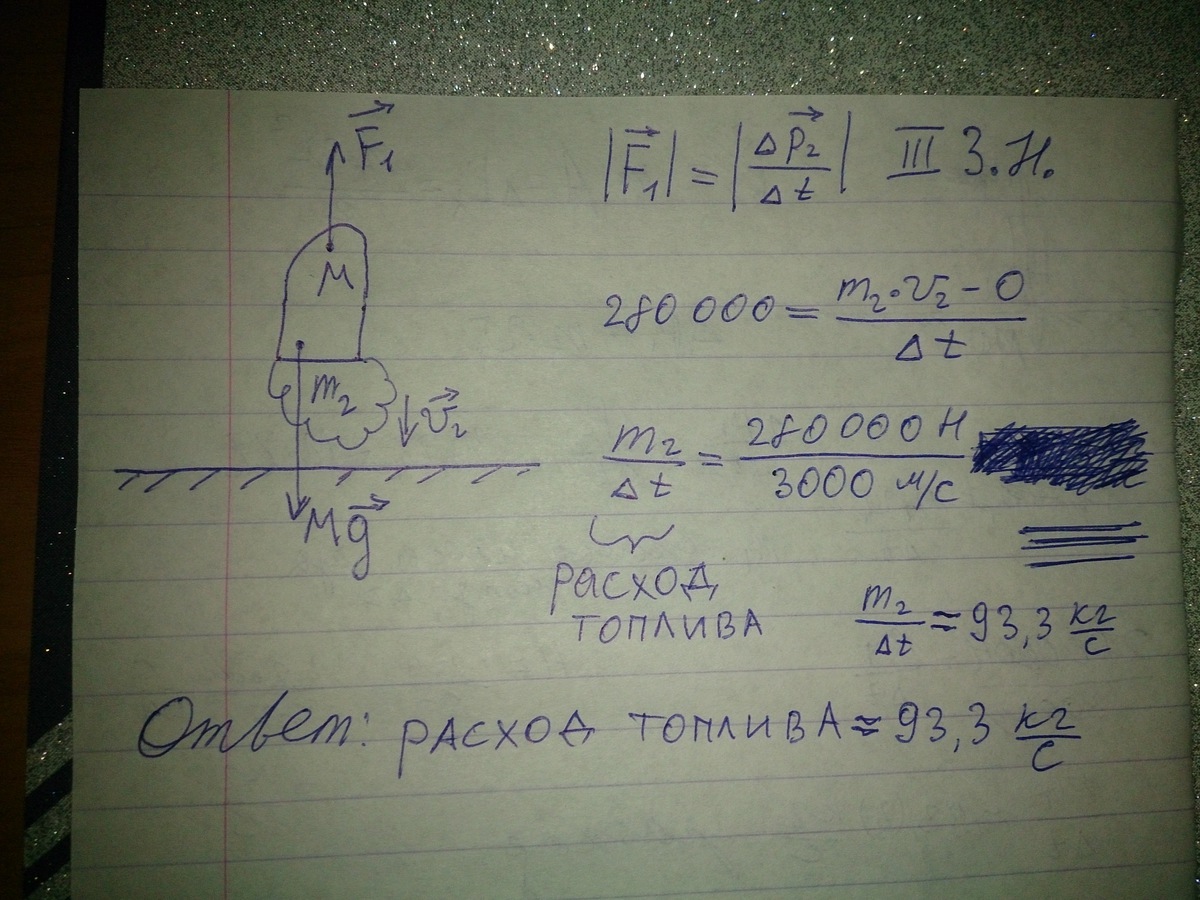 F₁
M
m₂
v₂
Mg
|F₁| = |Δp₂/Δt| III З.Н.
280 000 = (m₂·v₂ − 0)/Δt
m₂/Δt = 280 000 Н/3000 м/с
расход
топлива
m₂/Δt ≈ 93,3 кг/с
Ответ: расход топлива ≈ 93,3 кг/с